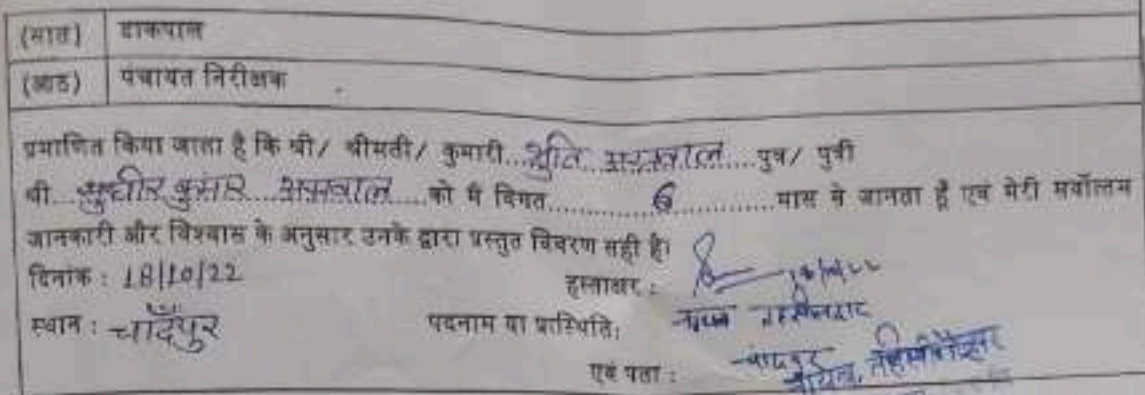 (सात) डाकपाल
(आठ) पंचायत निरीक्षक
प्रमाणित किया जाता है कि श्री/ श्रीमती/ कुमारी... श्रुति अग्रवाल ....पुत्र/ पुत्री
श्री... सुधीर कुमार अग्रवाल ...को मैं विगत............6.............मास से जानता हूँ एवं मेरी सर्वोत्तम
जानकारी और विश्वास के अनुसार उनके द्वारा प्रस्तुत विवरण सही है।
दिनांक : 18/10/22 हस्ताक्षर :
स्थान : चाँदपुर पदनाम या प्रास्थिति: नायब तहसीलदार
एवं पता : चांदपुर
नायब, तहसीलदार